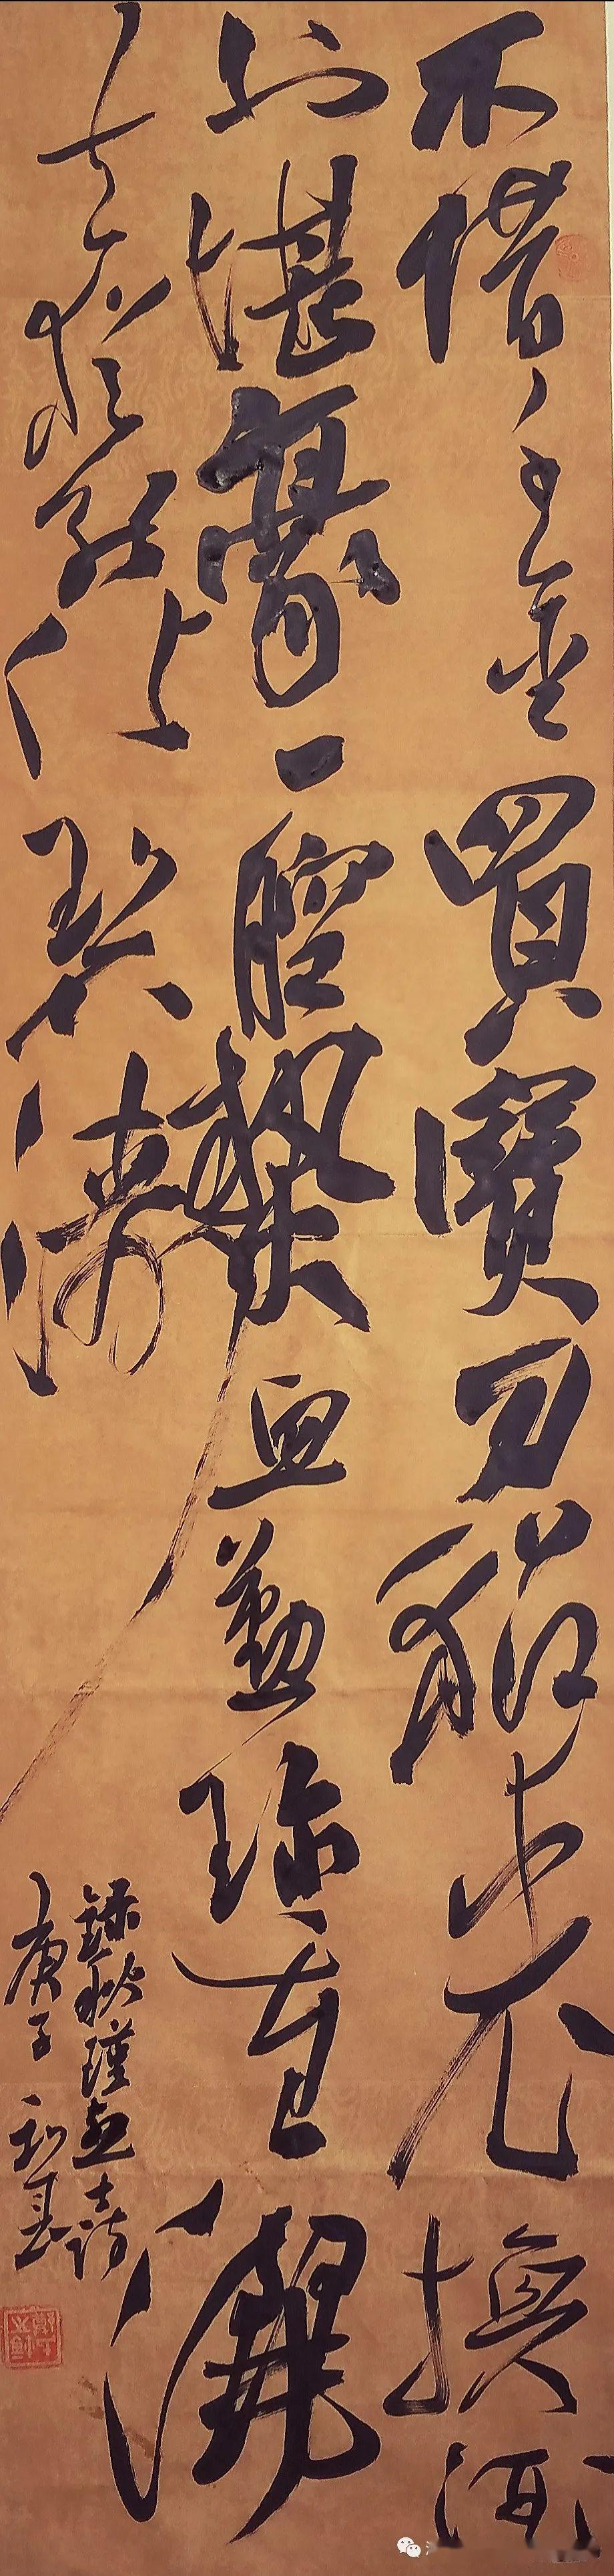 不惜千金買寶刀貂裘換酒
也堪豪一腔熱血勤珍重灑
去猶能化碧濤
錄秋瑾士詩
庚子初夏